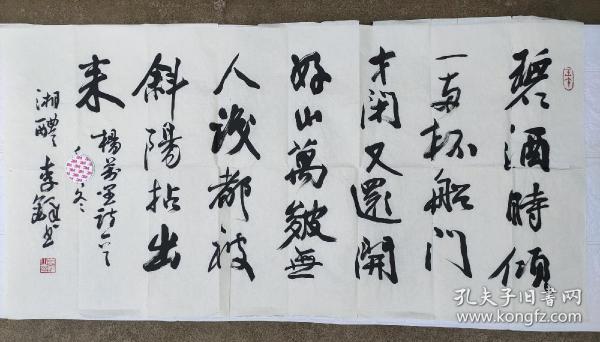 碧酒時傾
一両杯船門
才閉又還開
好山萬皺無
人識都被
斜陽拈出
来
楊萬里詩
冬
湘醴 李
孔夫子旧書网
www.kongfz.com